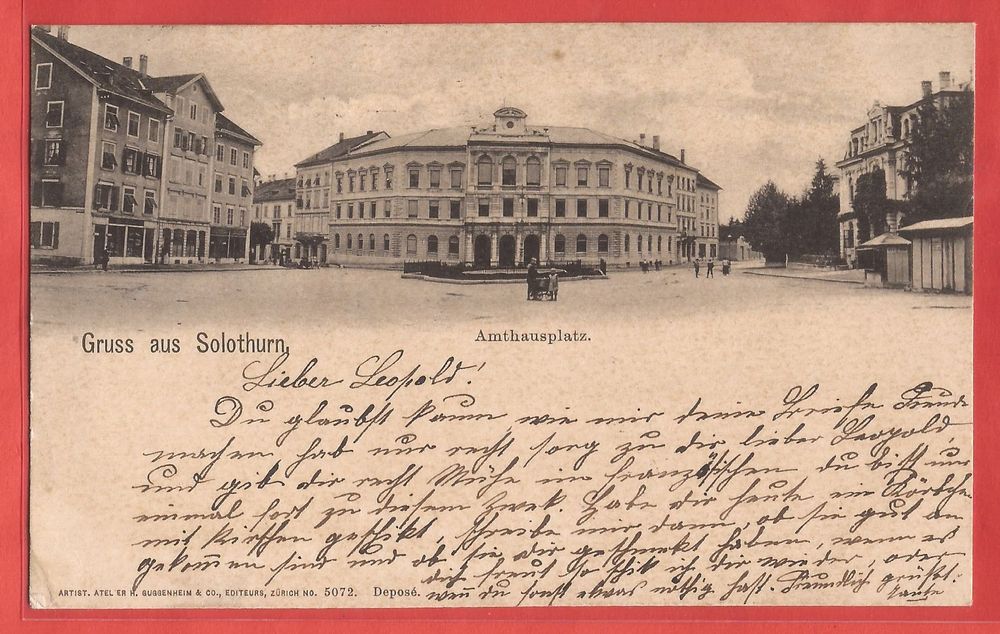 Amthausplatz.
Gruss aus Solothurn,
Lieber Leopold!
Du glaubst kaum wie mir deine Briefe Freude
machen, hab nur recht sorg zu dir lieber Leopold,
und gib dir recht Mühe im französischen du bist nun
einmal fort zu diesem Zwek. Habe dir heute ein Körbchen
mit Kirschen geschikt, schreibe mir dann, ob sie gut an
gekommen sind und ob sie dir geschmekt haben, wenn es
dich freut so schik ich dir wieder, oder
wenn du sonst etwas nöthig hast. Freundlich grüsst
Tante
ARTIST. ATELIER H. GUGGENHEIM & CO., EDITEURS, ZÜRICH NO. 5072. Deposé.